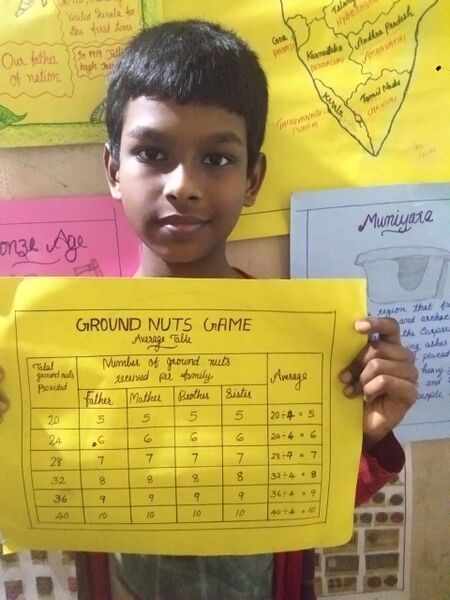 Visited Kerala for
the first time
Our father
of nation
In 1919 Jalli
bagh
Goa
PANAJI
HYDERABAD
Karnataka
BENGALURU
Andhra Pradesh
AMARAVATHI
Kerala
THIRUVANANTHA
PURAM
Tamil Nadu
CHENNAI
onze Age
Muniyara
region that
GROUND NUTS GAME
Average Table
Total ground nuts Provided | Number of ground nuts received per family | Average
Father | Mother | Brother | Sister
20 | 5 | 5 | 5 | 5 | 20÷4 = 5
24 | 6 | 6 | 6 | 6 | 24÷4 = 6
28 | 7 | 7 | 7 | 7 | 28÷4 = 7
32 | 8 | 8 | 8 | 8 | 32÷4 = 8
36 | 9 | 9 | 9 | 9 | 36÷4 = 9
40 | 10 | 10 | 10 | 10 | 40÷4 = 10
and
the
ing ashes
placed
heavy
and
people